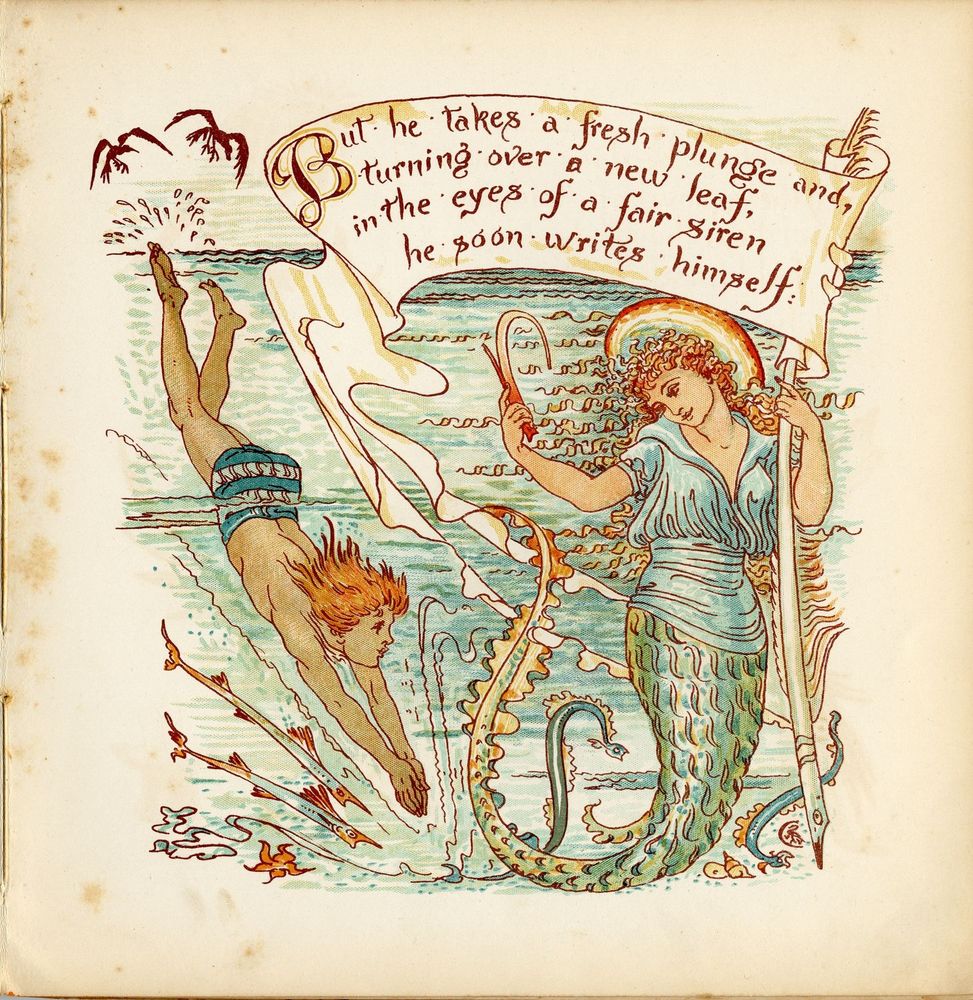 But · he · takes · a · fresh plunge and,
turning over · a · new leaf,
in the · eyes of · a · fair siren
he · soon · writes · himself: